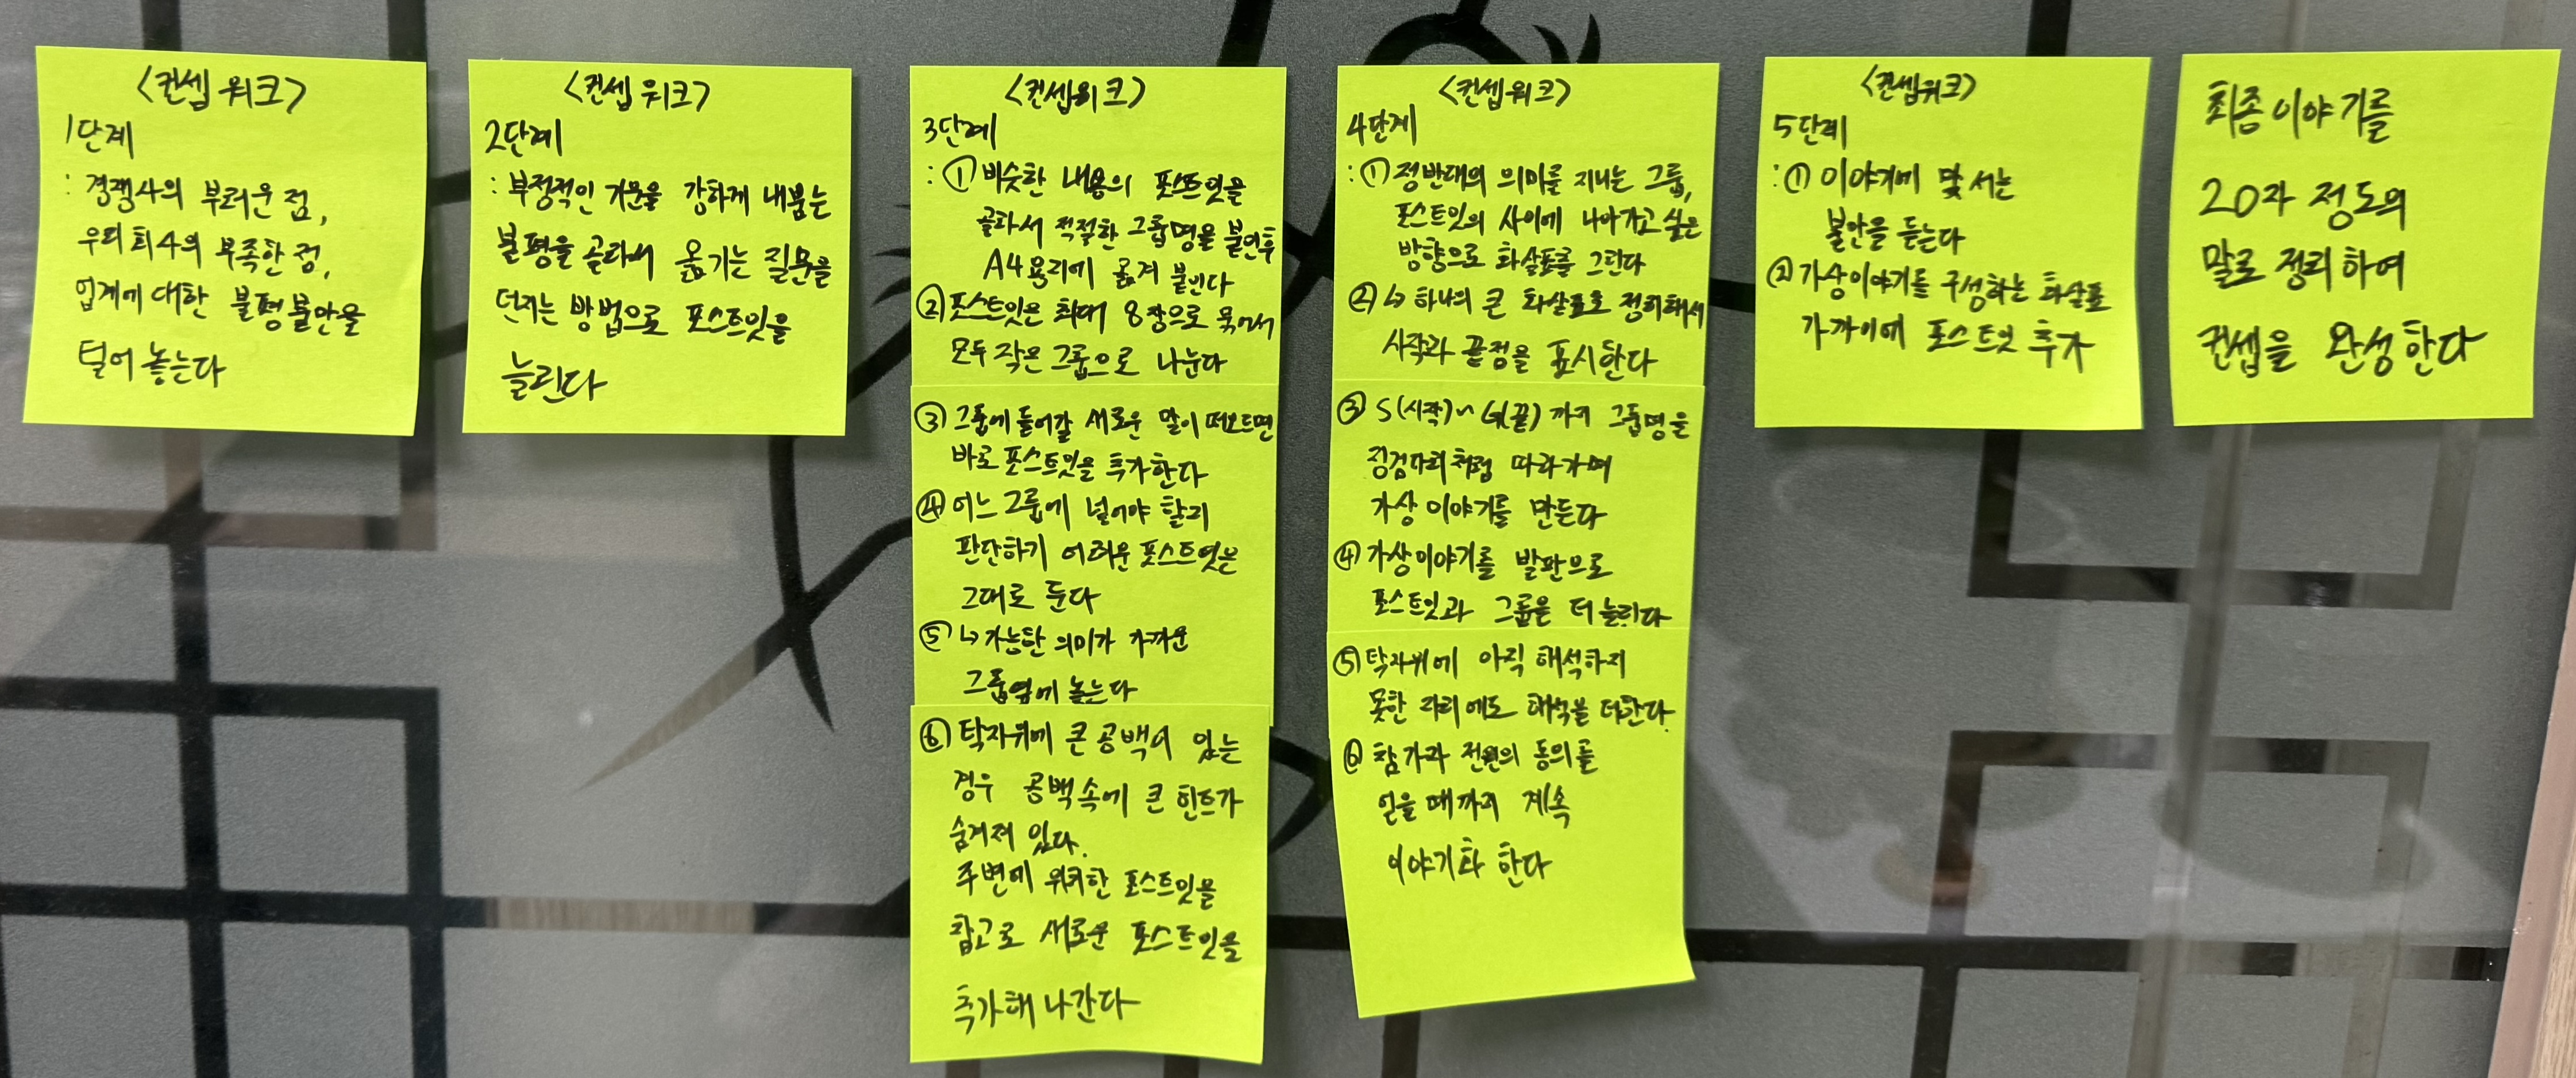 <컨셉 워크>
1단계
: 경쟁사의 부러운 점,
우리 회사의 부족한 점,
업계에 대한 불평불만을
털어 놓는다
<컨셉 워크>
2단계
: 부정적인 기운을 강하게 내뿜는
불평을 골라서 옮기는 질문을
던지는 방법으로 포스트잇을
늘린다
<컨셉워크>
3단계
: ① 비슷한 내용의 포스트잇을
골라서 적절한 그룹명을 붙인후
A4용지에 옮겨 붙인다
② 포스트잇은 최대 8장으로 묶어서
모두 작은 그룹으로 나눈다
③ 그룹에 들어갈 새로운 말이 떠오르면
바로 포스트잇을 추가한다
④ 어느 그룹에 넣어야 할지
판단하기 어려운 포스트잇은
그대로 둔다
⑤ ↳ 가능한 의미가 가까운
그룹옆에 놓는다
⑥ 탁자위에 큰 공백이 있는
경우 공백속에 큰 힌트가
숨겨져 있다.
주변에 위치한 포스트잇을
참고로 새로운 포스트잇을
추가해 나간다
<컨셉워크>
4단계
: ① 정반대의 의미를 지니는 그룹,
포스트잇의 사이에 나아가고 싶은
방향으로 화살표를 그린다
② ↳ 하나의 큰 화살표로 정리해서
시작과 끝점을 표시한다
③ S(시작)~G(끝) 까지 그룹명을
징검다리처럼 따라가며
가상 이야기를 만든다
④ 가상이야기를 발판으로
포스트잇과 그룹을 더 늘린다
⑤ 탁자위에 아직 해석하지
못한 자리에도 해석을 더한다.
⑥ 참가자 전원의 동의를
얻을 때까지 계속
이야기화 한다
<컨셉워크>
5단계
: ① 이야기에 맞서는
불안을 듣는다
② 가상이야기를 구성하는 화살표
가까이에 포스트잇 추가
최종이야기를
20자 정도의
말로 정리하여
컨셉을 완성한다